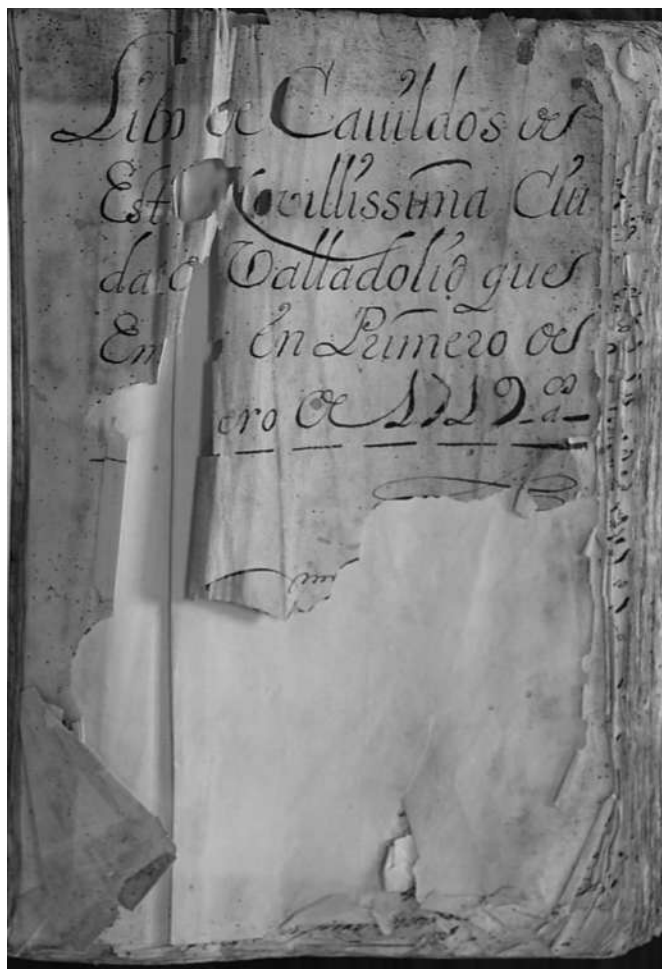 Libro de Cauildos de
Est Nouillissima Ciu
dad Valladolid que
Em en Primero de
ero de 1719 as